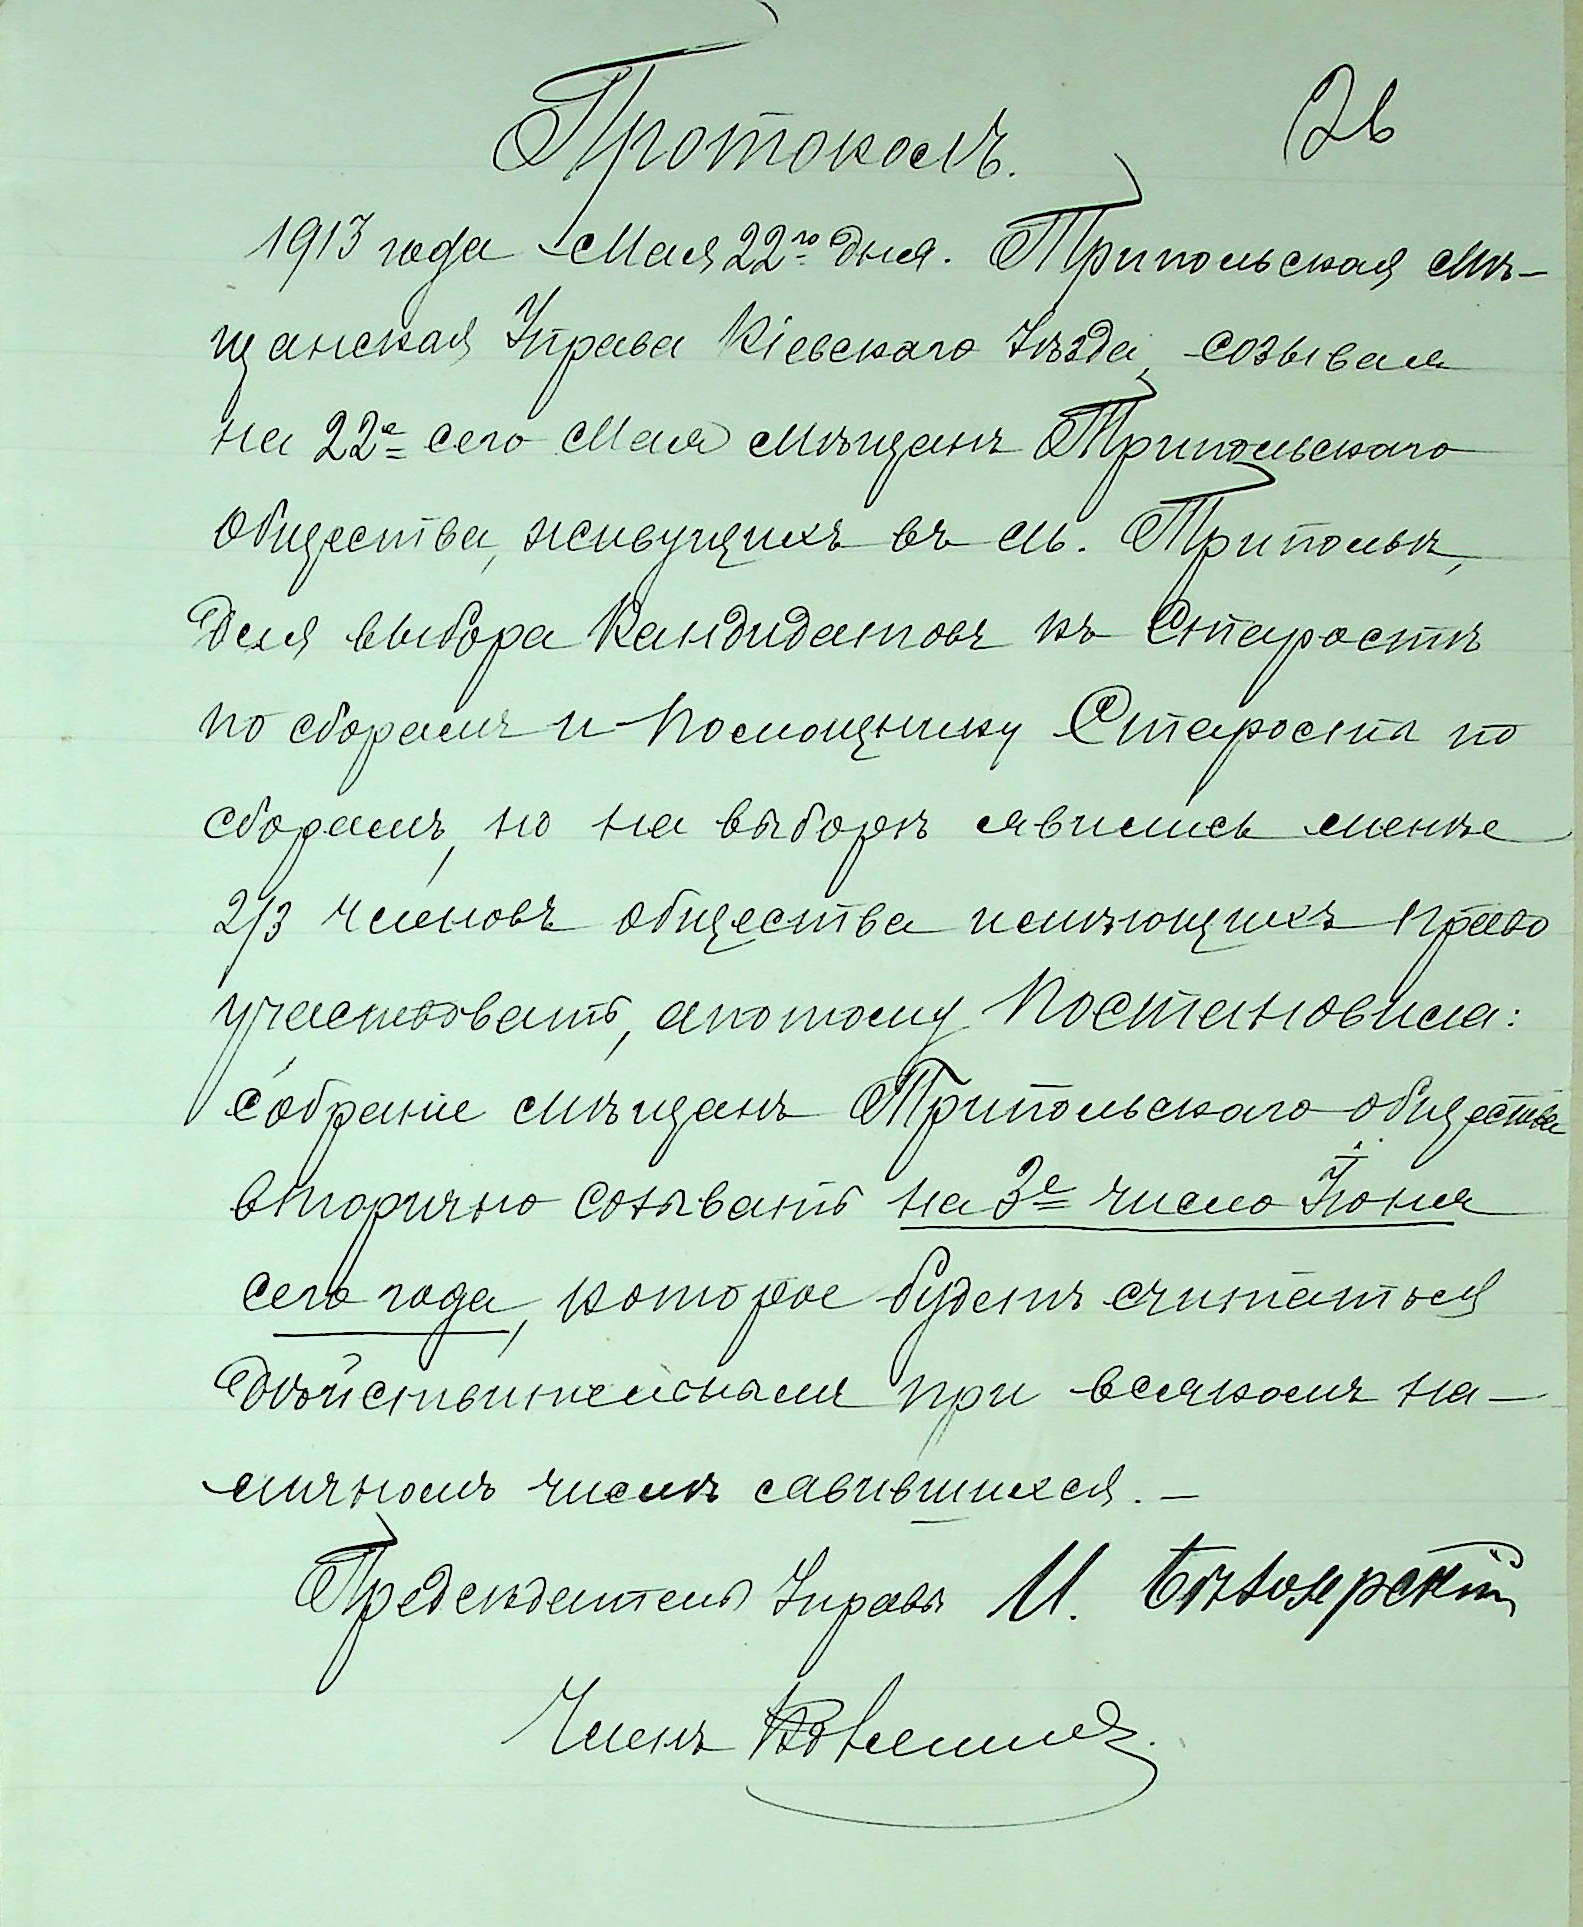 Протоколъ.
26
1913 года Мая 22го дня. Трипольская мѣ-
щанская Управа Кіевскаго Уѣзда, созывая
на 22е сего Мая мѣщанъ Трипольскаго
общества, живущихъ въ м. Трипольѣ,
для выбора Кандидатовъ къ Старостѣ
по сборамъ и Помощнику Старосты по
сборамъ, но на выборъ явились менѣе
2/3 членовъ общества имѣющихъ право
участвовать, а потому Постановила:
собраніе мѣщанъ Трипольскаго общества
вторично созвать на 3е число Іюня
сего года, которое будетъ считаться
дѣйствительнымъ при всякомъ на-
личномъ числѣ явившихся. —
Предсѣдатель Управы И.
Членъ